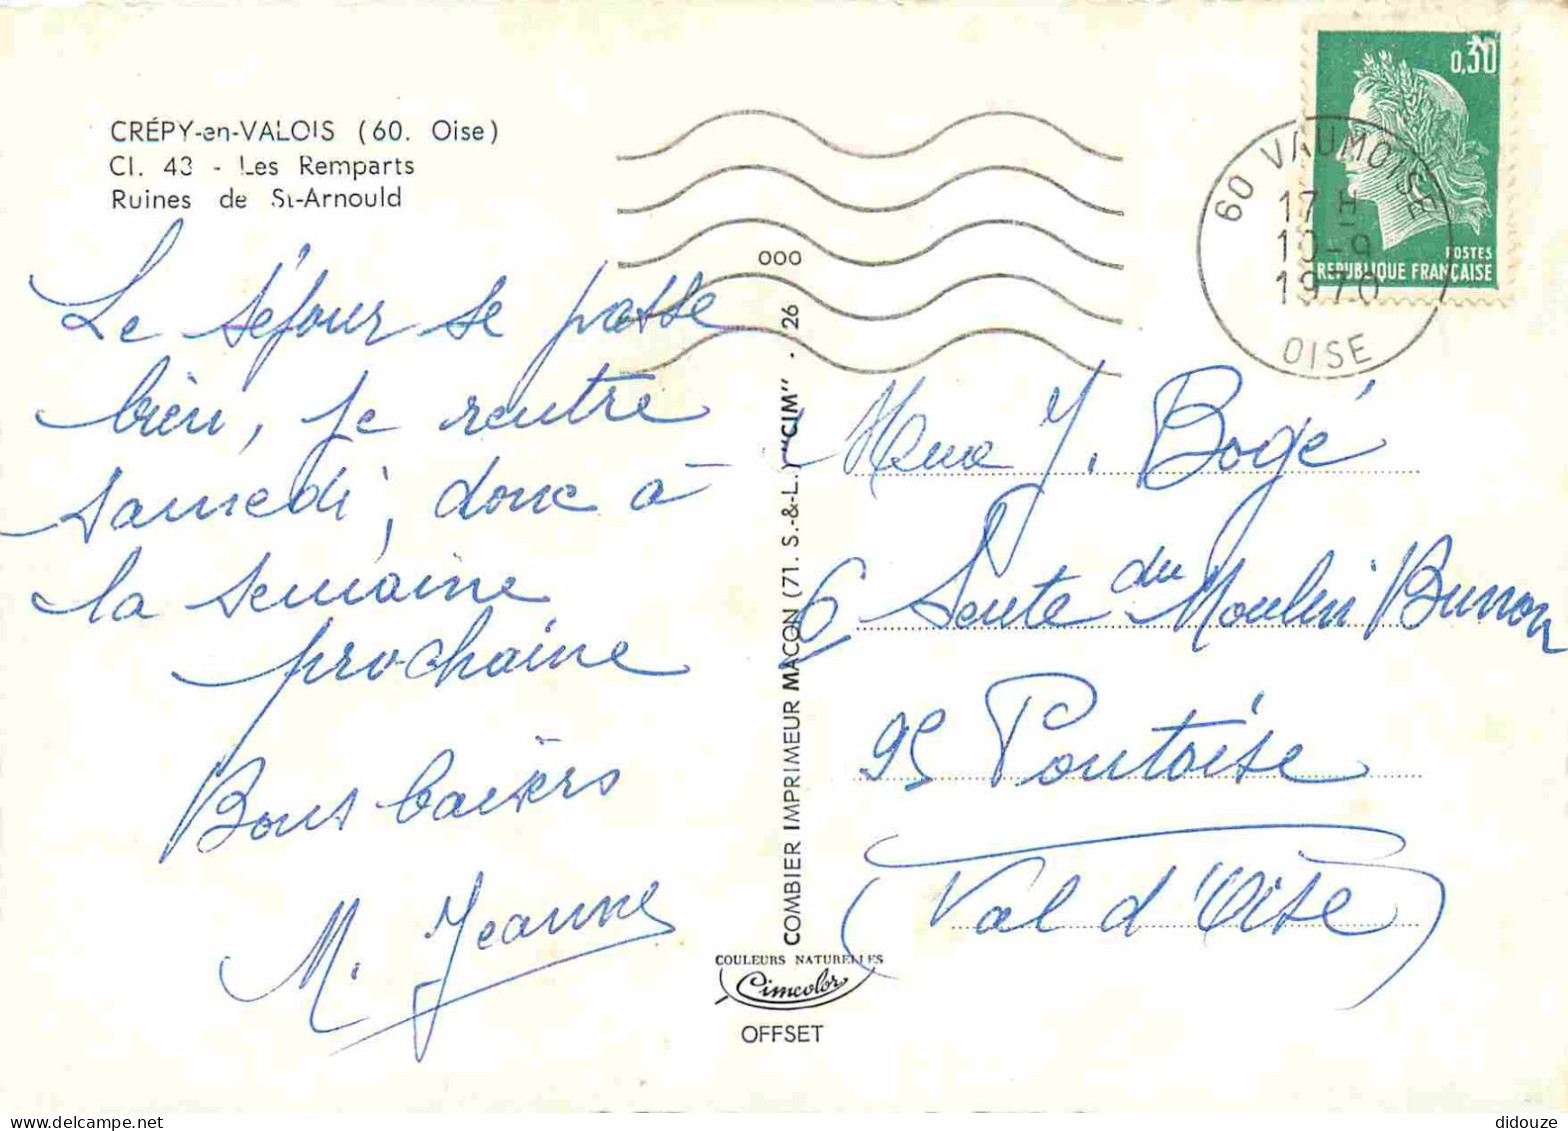 CRÉPY-en-VALOIS (60. Oise)
Cl. 43 - Les Remparts
Ruines de St-Arnould
Le séjour se passe
bien, je rentre
samedi, donc à
la semaine
prochaine
Bons baisers
M. Jeanne
000
COMBIER IMPRIMEUR MACON (71. S.-&-L.) "CIM" . 26
COULEURS NATURELLES
Cimcolor
OFFSET
0,30
POSTES
REPUBLIQUE FRANÇAISE
60 VAUMOISE
17 H
10-9
1970
OISE
Mme J. Bogé
6 Sente du Moulin
95 Pontoise
(Val d'Oise)
didouze